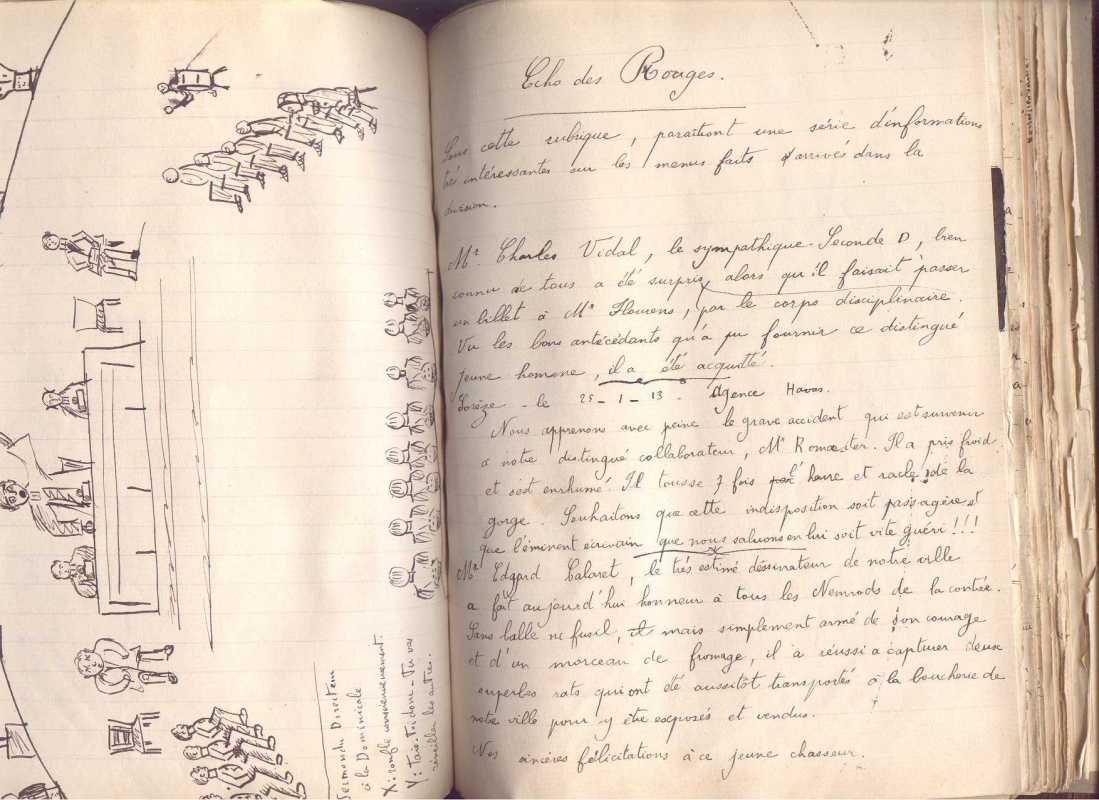 Sermon du Directeur
à la Dominicale
X: ronfle consciencieusement.
Y: tais-toi donc - Tu vas
réveiller les autres.
Echo des Rouges.
Sous cette rubrique, paraîtront une série d'informations
très intéressantes sur les menus faits arrivés dans la
division.
Mr. Charles Vidal, le sympathique Seconde D, bien
connu de tous a été surpris, alors qu'il faisait passer
un billet à Mr Fleurens, par le corps disciplinaire.
Vu les bons antécédants qu'a pu fournir ce distingué
jeune homme, il a été acquitté.
Sorèze - le 25 - 1 - 13 - Agence Havas.
Nous apprenons avec peine le grave accident qui est survenir
à notre distingué collaborateur, Mr Romæster. Il a pris froid
et s'est enrhumé. Il tousse 7 fois par heure et racle de la
gorge. Souhaitons que cette indisposition soit passagère et
que l'éminent écrivain que nous saluons en lui soit vite guéri!!!
Mr Edgard Calaret, le très estimé déssinateur de notre ville
a fait aujourd'hui honneur à tous les Nemrods de la contrée.
Sans balle ni fusil, mais simplement armé de son courage
et d'un morceau de fromage, il a réussi a capturer deux
superbes rats qui ont été aussitôt transportés à la boucherie de
notre ville pour y être exposés et vendus.
Nos sincères félicitations à ce jeune chasseur.